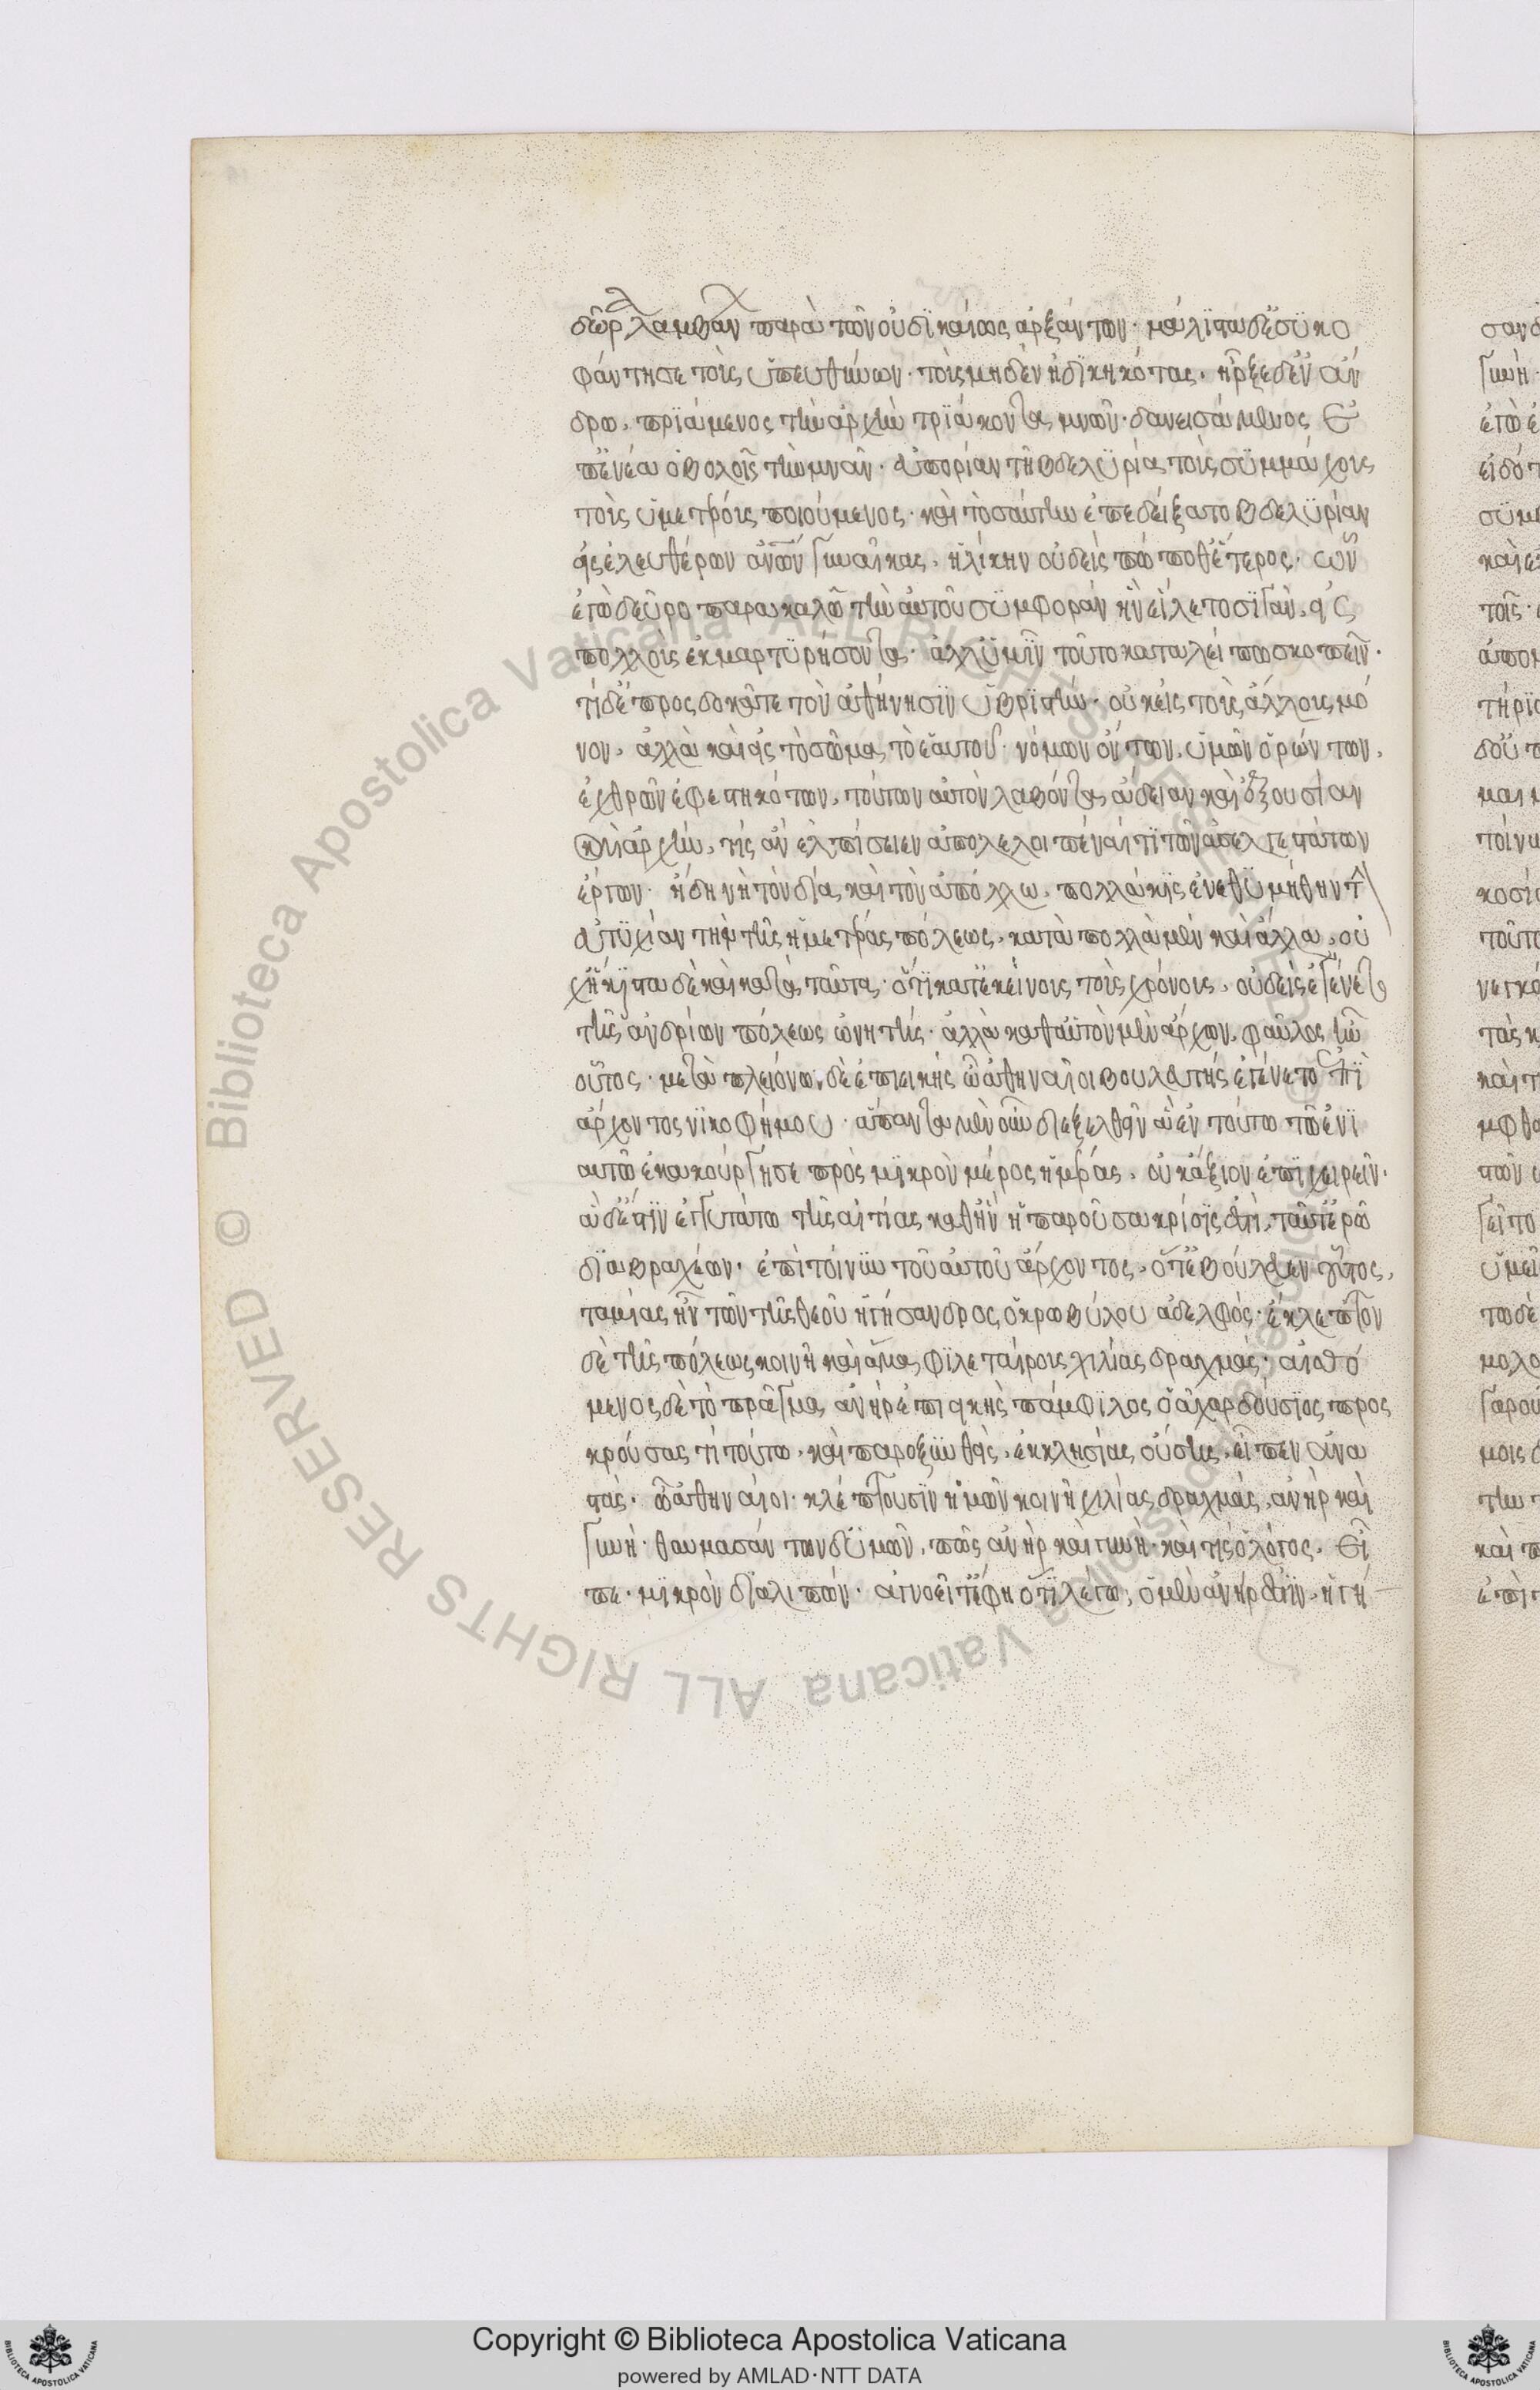 δῶρα λαμβάνων παρὰ τῶν οὐ δικαίως ἀρξάντων· μάλιστα δ' ἐσυκο
φάντησε τοὺς ὑπευθύνων· τοὺς μηδὲν ἠδικηκότας. ἦρξε δ' ἐν ἄν
δρω, πριάμενος τὴν ἀρχὴν τριάκοντα μνῶν· δανεισάμενος ἐ
π' ἐννέα ὀβολοῖς τὴν μνᾶν· εὐπορίαν τῇ βδελυρίᾳ τοὺς συμμάχους
τοὺς ὑμετέρους ποιούμενος· καὶ τοσαύτην ἐπεδείξατο βδελυρίαν
εἰς ἐλευθέρων ἀνων γυναῖκας, ἡλίκην οὐδεὶς πώποθ' ἕτερος· ὧν
ἐγὼ δεῦρο παρακαλῶ τὴν αὐτοῦ συμφορὰν ἣν εἵλετο σιγᾶν, εἰς
πολλοὺς ἐκμαρτυρήσοντα· ἀλλ' ὑμῖν τοῦτο καταλείπω σκοπεῖν·
τί δὲ προσδοκᾶτε τὸν ἀθήνησιν ὑβριστήν· οὐκ εἰς τοὺς ἄλλους μό
νον, ἀλλὰ καὶ εἰς τὸ σῶμα τὸ ἑαυτοῦ· νόμων ὄντων, ὑμῶν ὁρώντων,
ἐχθρῶν ἐφεστηκότων, τοῦτον αὐτὸν λαβόντα ἄδειαν καὶ ἐξουσίαν
καὶ ἀρχήν, τίς ἂν ἐλπίσειεν ἀπολελοιπέναι τι τῶν ἀσελγεστάτων
ἔργων· ἤδη νὴ τὸν δία καὶ τὸν ἀπόλλω, πολλάκις ἐνεθυμήθην τ
εὐτυχίαν τὴν τῆς ἡμετέρας πόλεως, κατὰ πολλὰ μὲν καὶ ἄλλα, οὐ
χ' ἥκιστα δὲ καὶ κατὰ ταῦτα· ὅτι κατ' ἐκείνους τοὺς χρόνους, οὐδεὶς ἐγένετο
τῆς ἀνδρίων πόλεως ὠνητής· ἀλλὰ καθ' αὑτὸν μὲν ἄρχων, φαῦλος ἦν
οὗτος· μετὰ πλειόνων δὲ ἐπιεικής ὦ ἀθηναῖοι βουλευτὴς ἐγένετο ἐπὶ
ἄρχοντος νικοφήμου· ἅπαντα μὲν οὖν διεξελθεῖν ἃ ἐν τούτῳ τῷ ἐνι
αυτῷ ἐκακούργησε πρὸς μικρὸν μέρος ἡμέρας, οὐκ ἄξιον ἐπιχειρεῖν·
ἃ δ' ἐστὶν ἐγγυτάτω τῆς αἰτίας καθ' ἣν ἡ παροῦσα κρίσις ἐστὶ, ταῦτ' ἐρῶ
διὰ βραχέων· ἐπὶ τοίνυν τοῦ αὐτοῦ ἄρχοντος, ὅτ' ἐβούλευεν οὗτος,
ταμίας ἦν τῶν τῆς θεοῦ ἡγήσανδρος ὁ κρωβύλου ἀδελφός· ἔκλεπτον
δὲ τῆς πόλεως κοινῇ καὶ ἅμα φιλεταίρως χιλίας δραχμάς· αἰσθό
μενος δὲ τὸ πρᾶγμα ἀνὴρ ἐπιεικὴς πάμφιλος ὁ ἀχαρδούσιος προς
κρούσας τι τούτῳ, καὶ παροξυνθείς, ἐκκλησίας οὔσης, εἶπεν ἀνα
στάς· ὦ ἀθηναῖοι· κλέπτουσιν ἡμῶν κοινῇ χιλίας δραχμάς, ἀνὴρ καὶ
γυνή· θαυμασάντων δ' ὑμῶν, πῶς ἀνὴρ καὶ γυνή· καὶ τίς ὁ λόγος. εἶ
πε· μικρὸν διαλιπών· ἀγνοεῖτ' ἔφη ὅτι λέγω; ὁ μὲν ἀνήρ ἐστιν, ἡγή